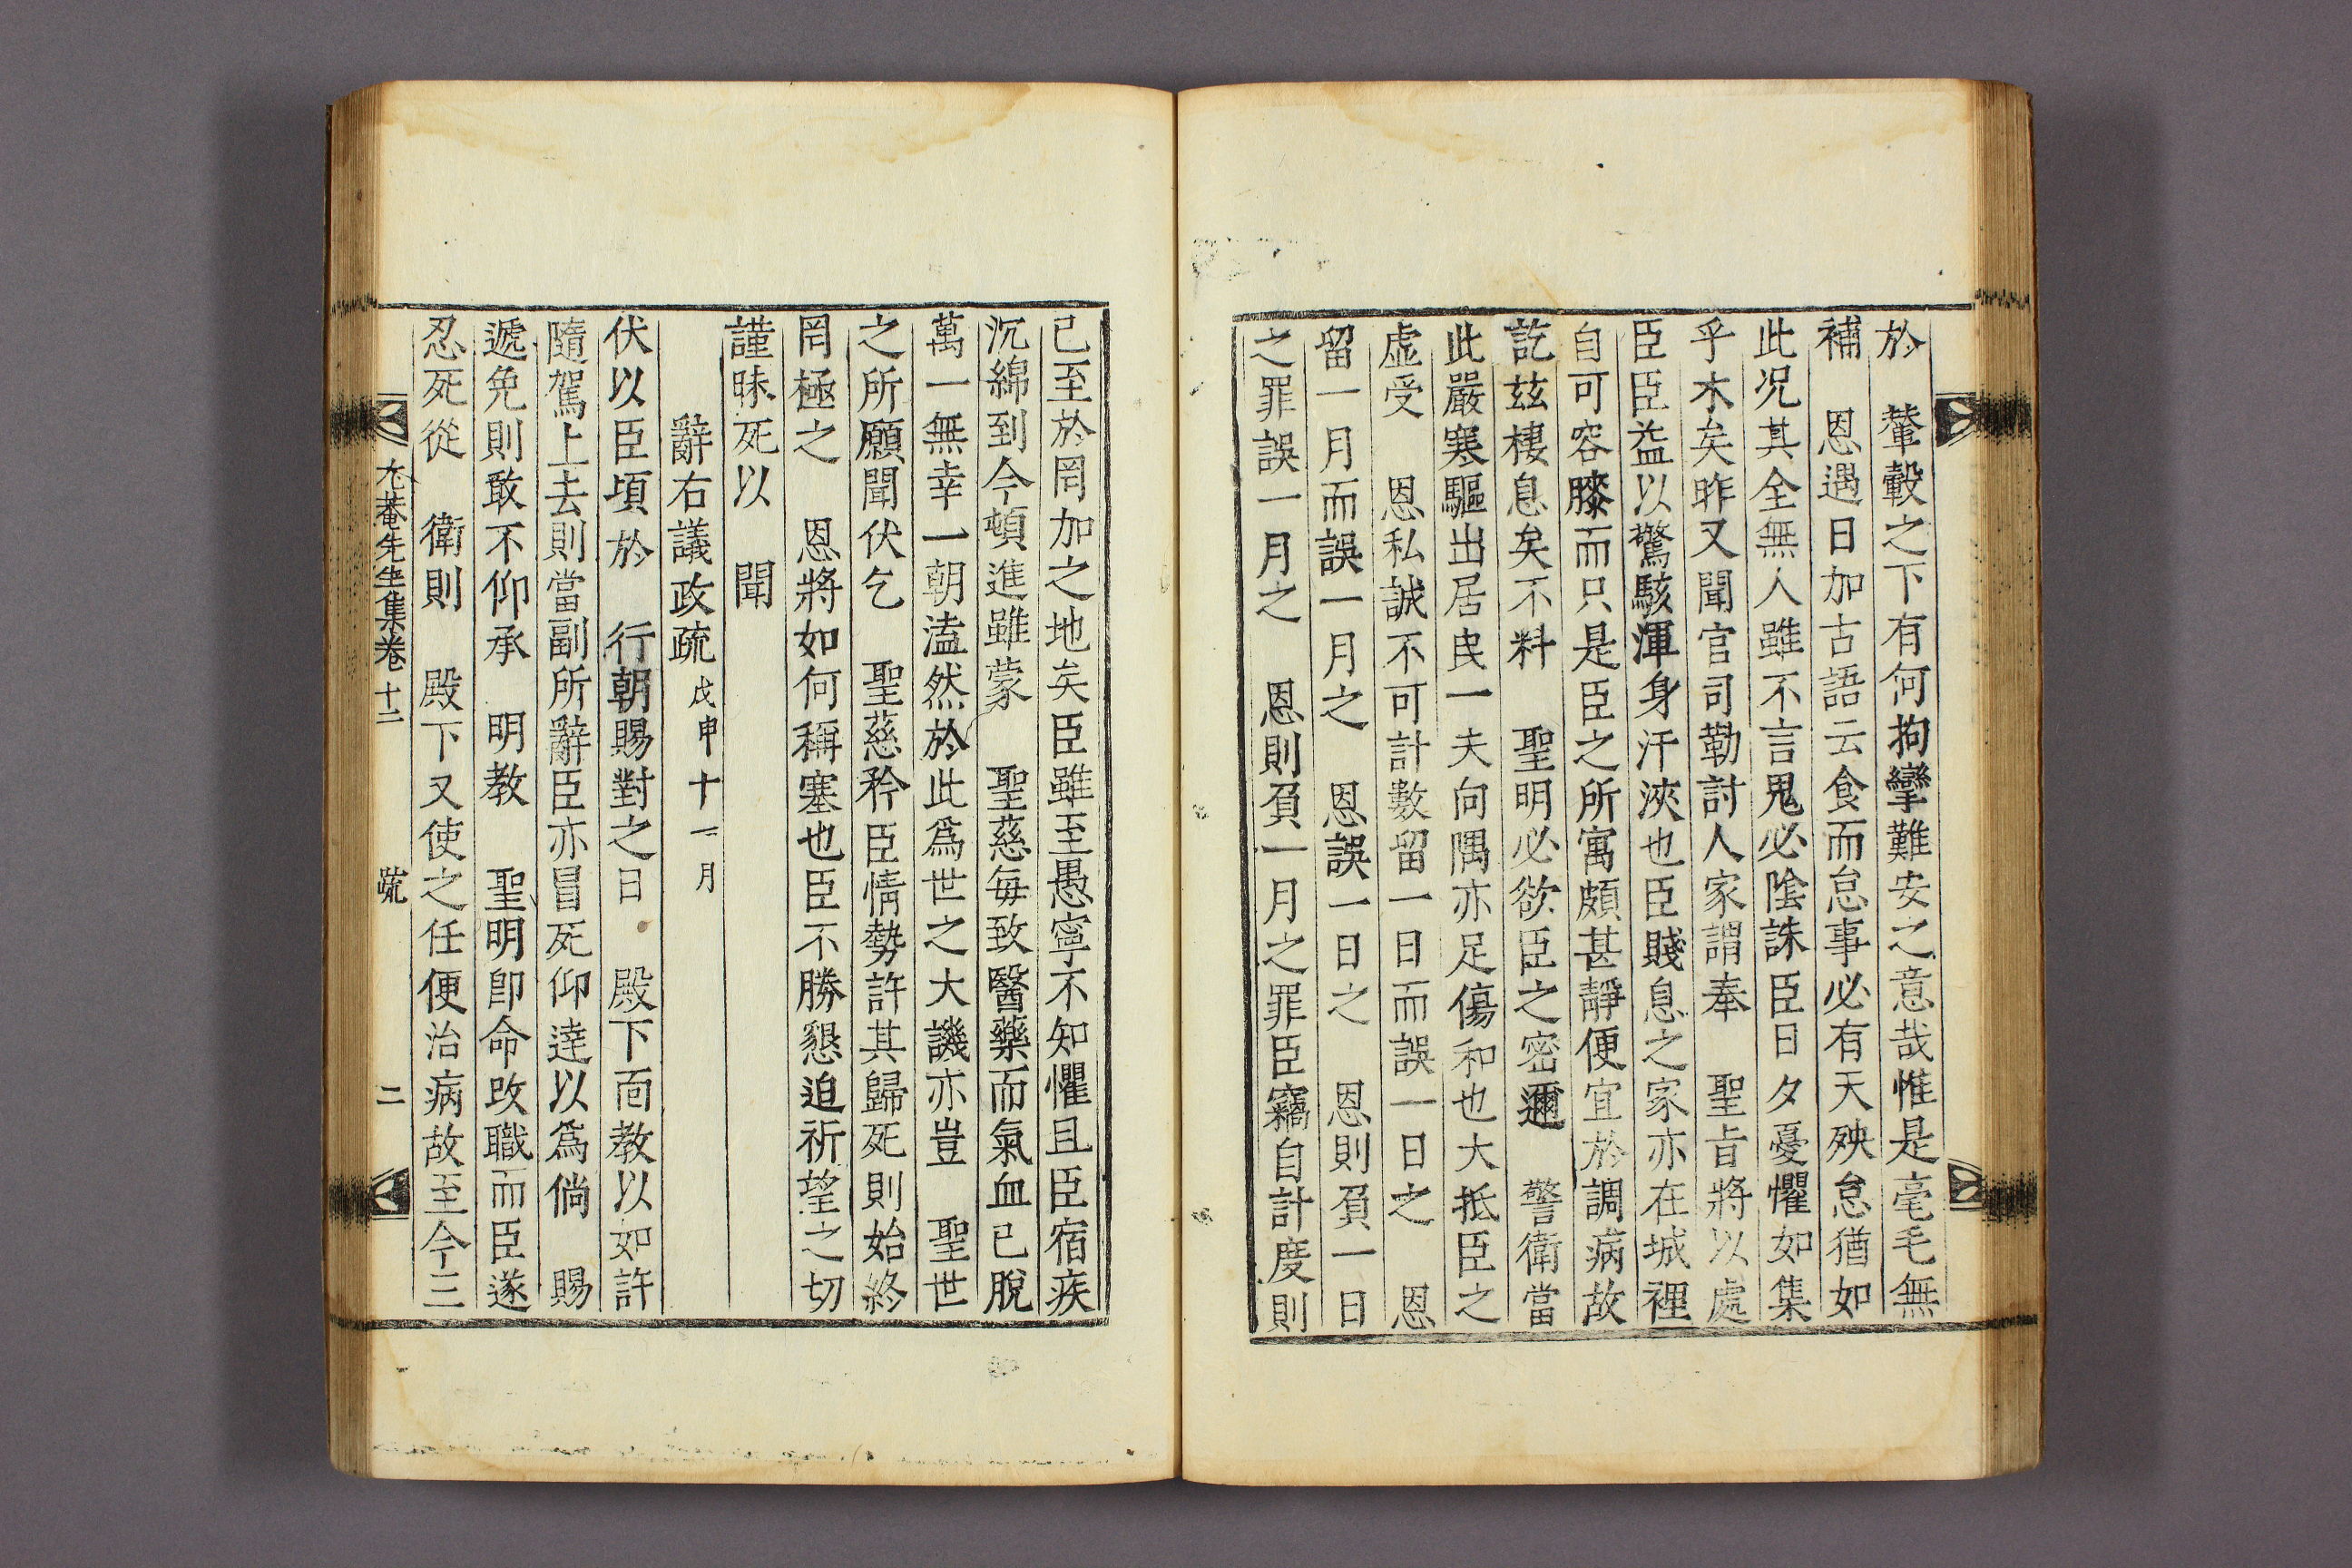 於 輦轂之下有何拘攣難安之意哉惟是毫毛無
補 恩遇日加古語云食而怠事必有天殃怠猶如
此况其全無人雖不言鬼必陰誅臣日夕憂懼如集
乎木矣昨又聞官司勒討人家謂奉 聖旨將以處
臣臣益以驚駭渾身汗浹也臣賤息之家亦在城裡
自可容膝而只是臣之所寓頗甚靜便宜於調病故
訖玆棲息矣不料 聖明必欲臣之密邇 警衛當
此嚴寒驅出居民一夫向隅亦足傷和也大抵臣之
虛受 恩私誠不可計數留一日而誤一日之 恩
留一月而誤一月之 恩誤一日之 恩則負一日
之罪誤一月之 恩則負一月之罪臣竊自計度則
已至於罔加之地矣臣雖至愚寧不知懼且臣宿疾
沉綿到今頓進雖蒙 聖慈每致醫藥而氣血已脫
萬一無幸一朝溘然於此爲世之大譏亦豈 聖世
之所願聞伏乞 聖慈矜臣情勢許其歸死則始終
罔極之 恩將如何稱塞也臣不勝懇迫祈望之切
謹昧死以 聞
辭右議政疏 戊申十一月
伏以臣頃於 行朝賜對之日 殿下面教以如許
隨駕上去則當副所辭臣亦冒死仰達以爲倘 賜
遞免則敢不仰承 明教 聖明卽命改職而臣遂
忍死從 衛則 殿下又使之任便治病故至今三
尤菴先生集卷十二 疏 二